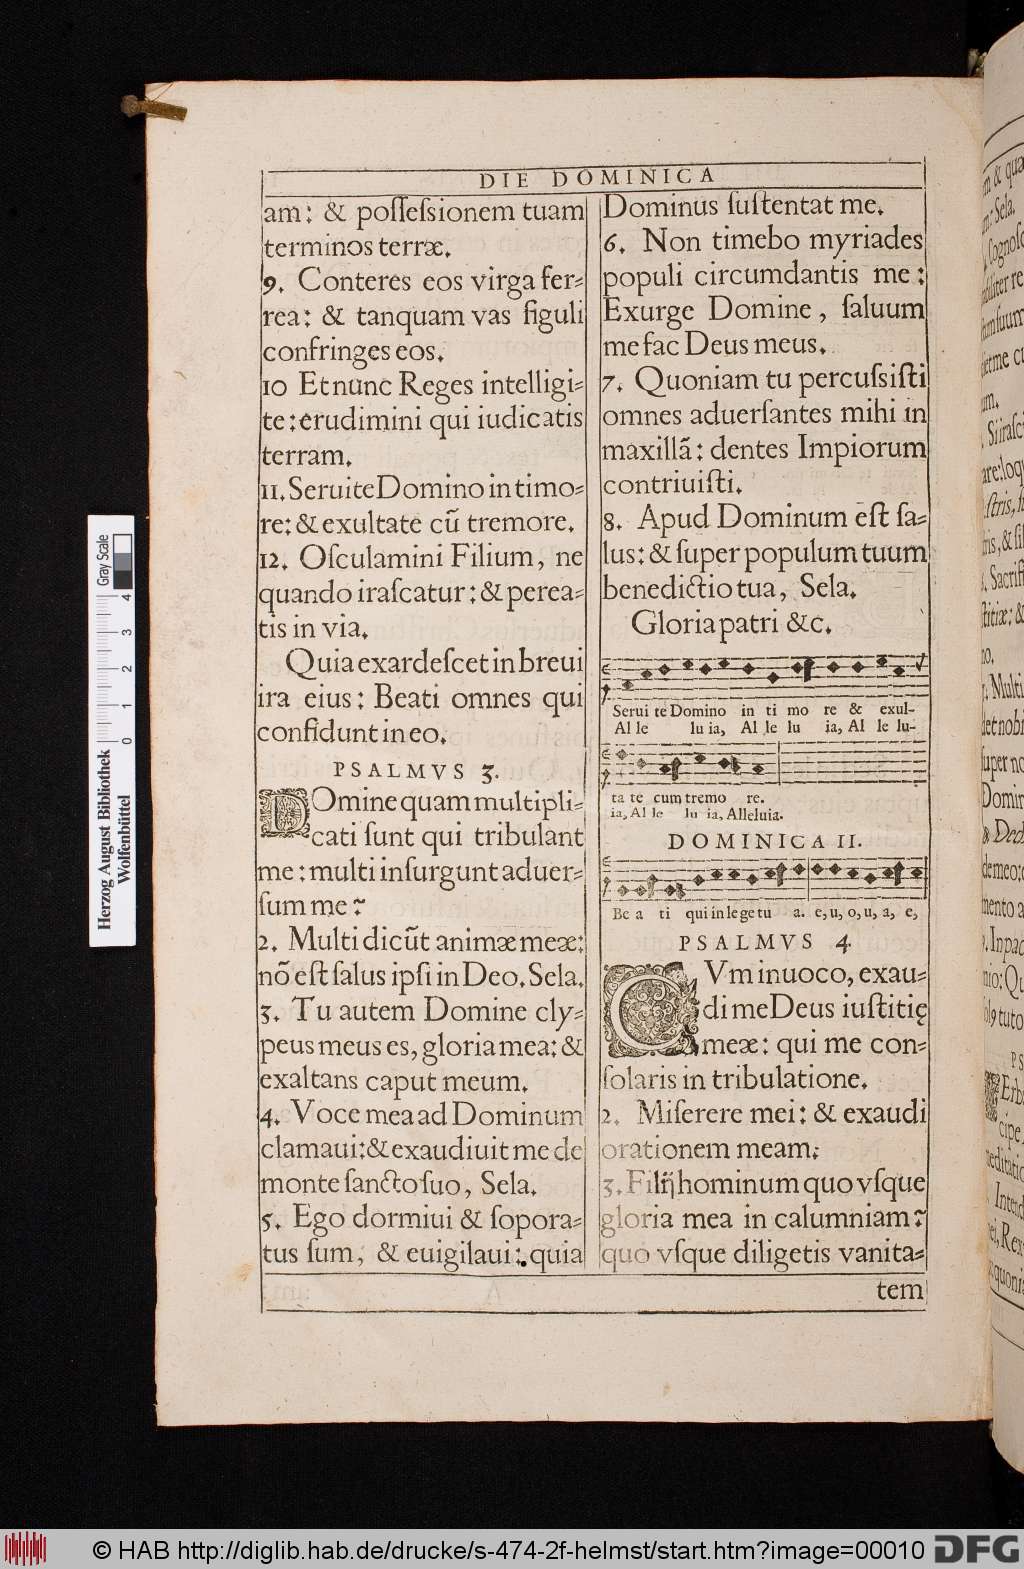 DIE DOMINICA
am: & poſſeſsionem tuam
terminos terræ.
9. Conteres eos virga fer-
rea: & tanquam vas figuli
confringes eos.
10 Et nunc Reges intelligi-
te: erudimini qui iudicatis
terram.
11. Seruite Domino in timo-
re: & exultate cū tremore.
12. Oſculamini Filium, ne
quando iraſcatur: & perea-
tis in via.
Quia exardeſcet in breui
ira eius: Beati omnes qui
confidunt in eo.
PSALMVS 3.
DOmine quam multipli-
cati ſunt qui tribulant
me: multi inſurgunt aduer-
ſum me?
2. Multi dicūt animæ meæ:
nō eſt ſalus ipſi in Deo. Sela.
3. Tu autem Domine cly-
peus meus es, gloria mea: &
exaltans caput meum.
4. Voce mea ad Dominum
clamaui: & exaudiuit me de
monte ſancto ſuo, Sela.
5. Ego dormiui & ſopora-
tus ſum, & euigilaui: quia
Dominus ſuſtentat me.
6. Non timebo myriades
populi circumdantis me:
Exurge Domine, ſaluum
me fac Deus meus.
7. Quoniam tu percuſsiſti
omnes aduerſantes mihi in
maxillā: dentes Impiorum
contriuiſti.
8. Apud Dominum eſt ſa-
lus: & ſuper populum tuum
benedictio tua, Sela.
Gloria patri &c.
Serui te Domino in ti mo re & exul-
Al le lu ia, Al le lu ia, Al le lu-
ta te cum tremo re.
ia, Al le lu ia, Alleluia.
DOMINICA II.
Be a ti qui in le ge tu a. e, u, o, u, a, e,
PSALMVS 4.
CVm inuoco, exau-
di me Deus iuſtitię
meæ: qui me con-
ſolaris in tribulatione.
2. Miſerere mei: & exaudi
orationem meam:
3. Filij hominum quo vſque
gloria mea in calumniam?
quo vſque diligetis vanita-
tem
Herzog August Bibliothek
Wolfenbüttel
0 1 2 3 4 Gray Scale
© HAB http://diglib.hab.de/drucke/s-474-2f-helmst/start.htm?image=00010
DFG